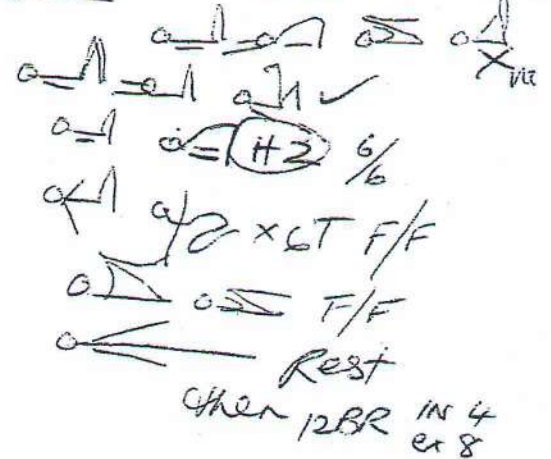 ✓
H2 6/6
×6T F/F
F/F
Rest
then 12BR IN 4
ex 8